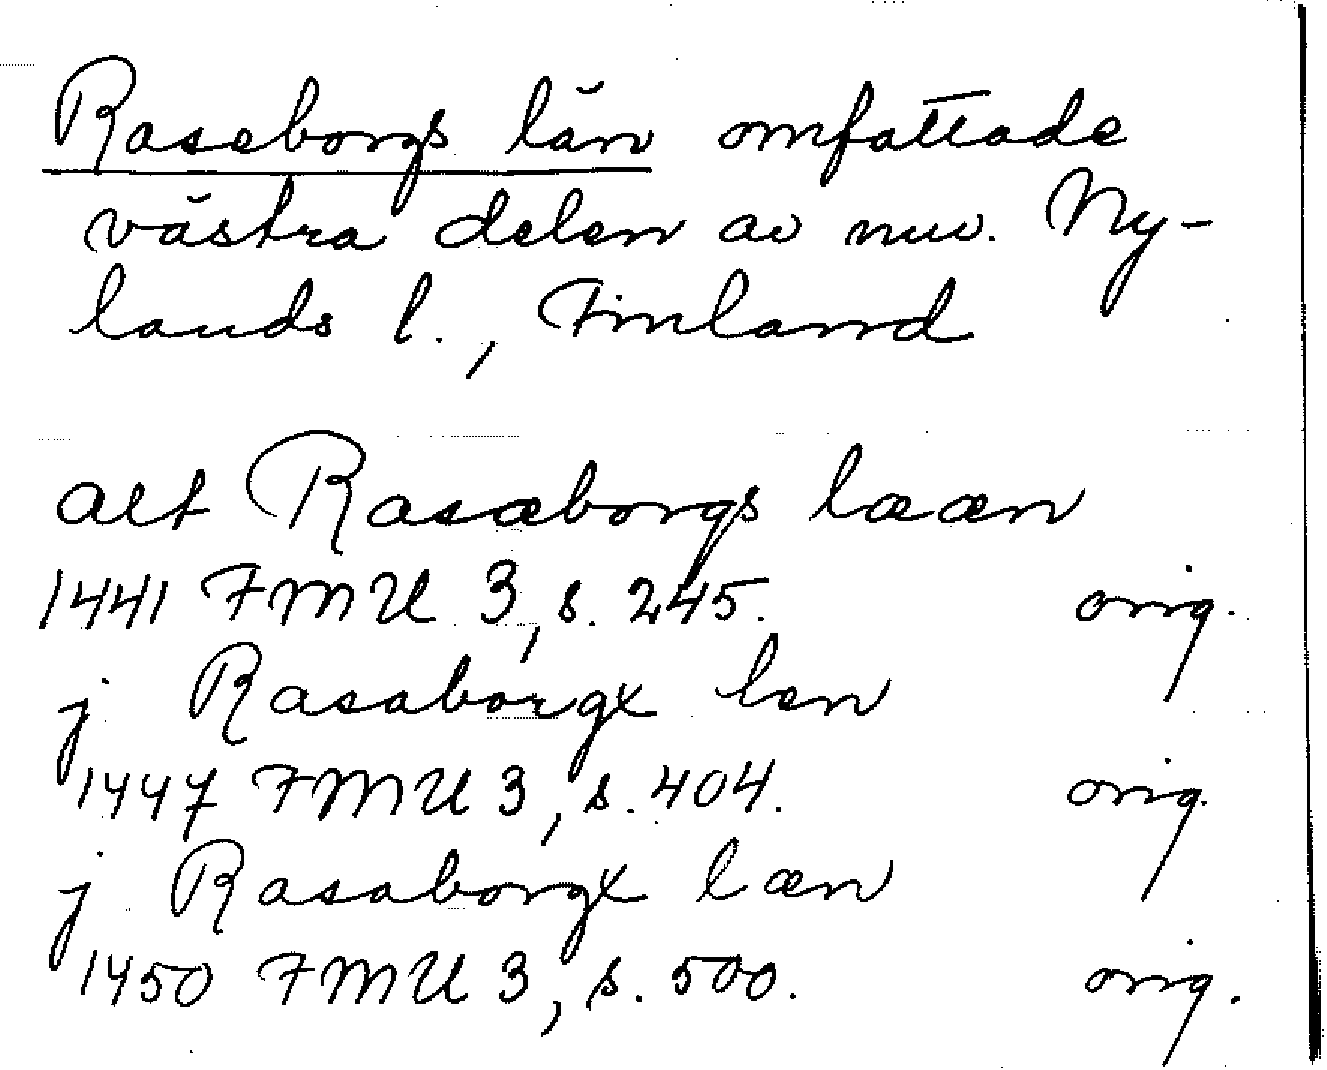 Raseborgs län omfattade
västra delen av nuv. Ny-
lands l., Finland
alt Rasæborgs lææn
1441 FMU 3, s. 245. orig.
j Rasaborgx len
1447 FMU 3, s. 404. orig.
j Rasaborgx læn
1450 FMU 3, s. 500. orig.